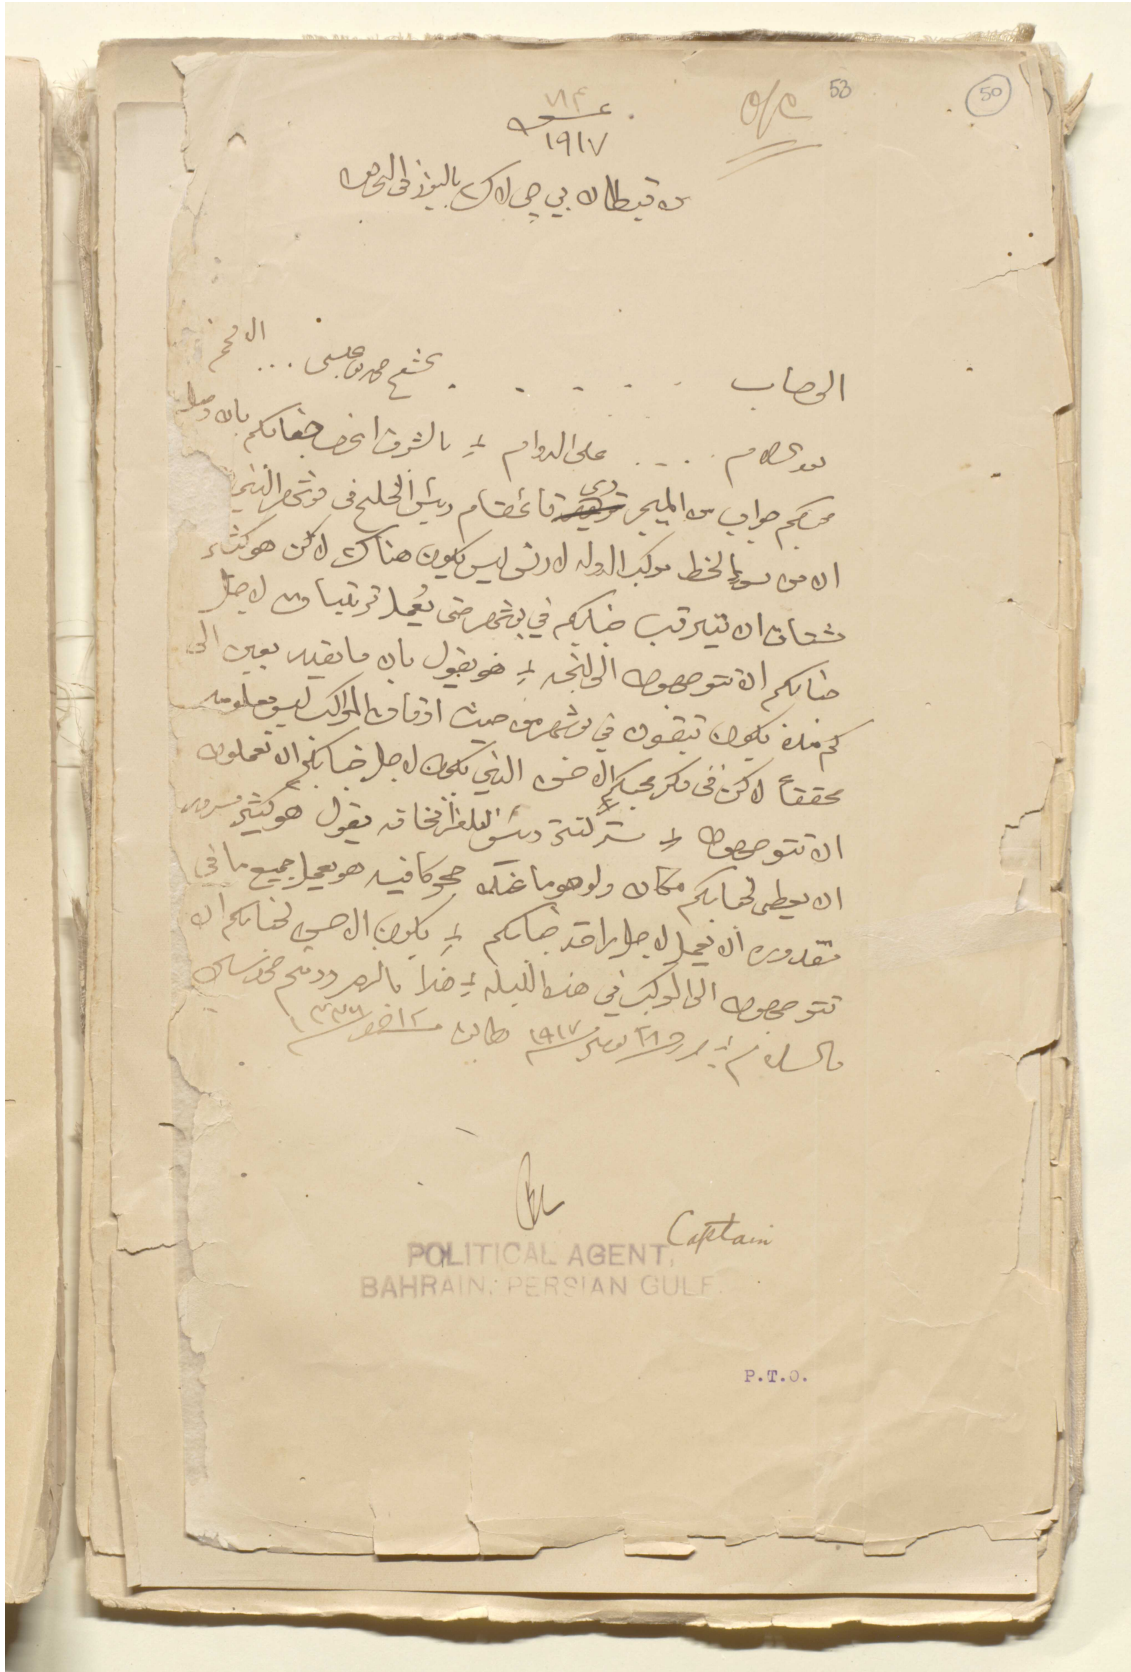 53
50
o/c
١٩١٧
من قبطان بي جي لاك باليوز في البحرين
الى جناب الشيخ حمد بن عيسى ... الافخم
بعد السلام .... على الدوام بالشرف اخبر جنابكم بان وصل
محبكم جواب من الميجر تري قائمقام رئيس الخليج في بوشهر
ان من سوء الخط مركب الدولة لارنس ليس يكون هناك لاكن هو كثير
مشتاق ان جنابكم في بوشهر حتى يعمل ترتيبات لاجل
جنابكم ان تتوجهون الى هو يقول بان ما يقدر يعين الى
كم مدة يكون تبقون في بوشهر من حيث اوقات المراكب ليس معلومه
محققاً لاكن في فكر محبكم الاحسن الذي يكون لاجل جنابكم ان تعملون
ان تتوجهون رئيس التلغرافخانه يقول هو كثير مسرور
ان يعطي لجنابكم مكان ولو هو ما عنده حجر كافيه هو يعمل جميع ما في
مقدوره ان يعمل لاجل راحة جنابكم يكون الاحسن لجنابكم ان
تتوجهون الى المركب في هذه الليلة هذا ما لزم ودمتم محروسين
والسلام حرر ٢٨ نومبر ١٩١٧ مطابق ١٢ صفر ١٣٣٦
Captain
POLITICAL AGENT,
BAHRAIN, PERSIAN GULF.
P.T.O.